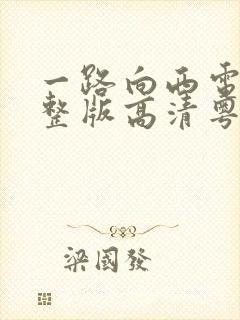 一路向西电
整版高清粤
梁國發